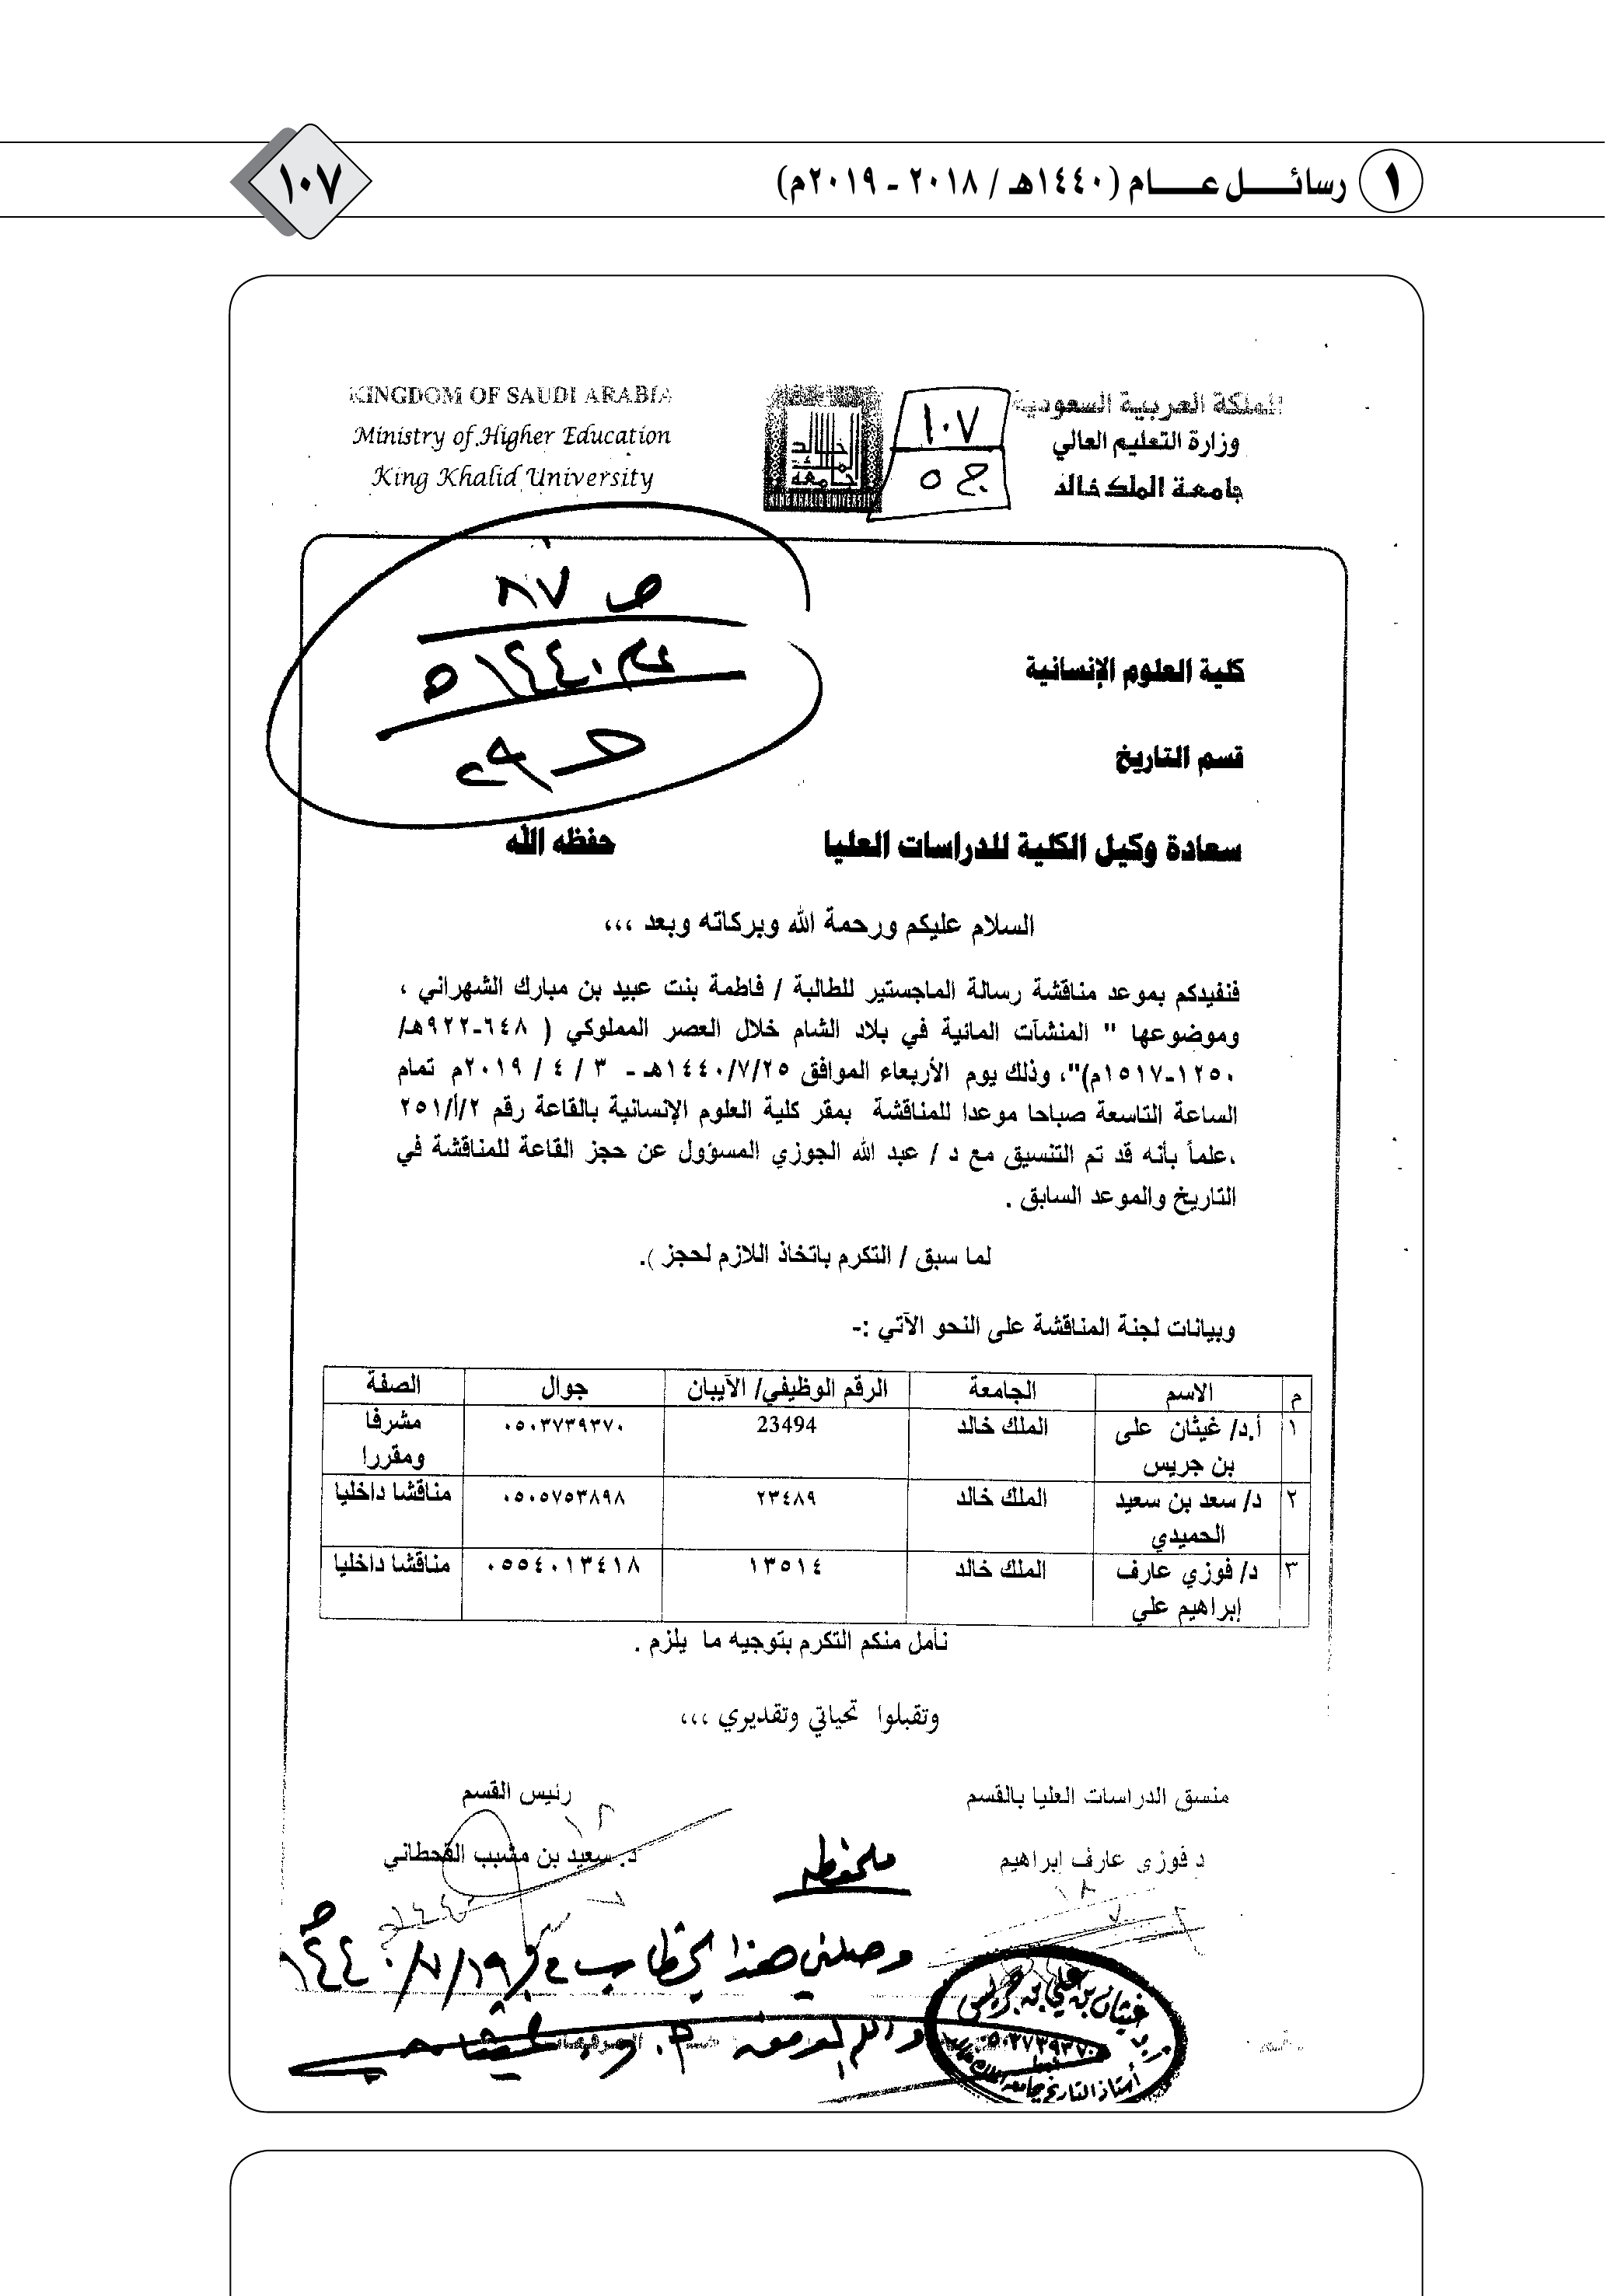 ١ رسائـــل عـــام (١٤٤٠هـ / ٢٠١٨ - ٢٠١٩م)
١٠٧
المملكة العربية السعودية
وزارة التعليم العالي
جامعة الملك خالد
١٠٧
ج ٥
KINGDOM OF SAUDI ARABIA
Ministry of Higher Education
King Khalid University
KING KHALID UNIVERSITY
ص ٨٧
عام ١٤٤٠هـ
ح ٢٩
كلية العلوم الإنسانية
قسم التاريخ
سعادة وكيل الكلية للدراسات العليا حفظه الله
السلام عليكم ورحمة الله وبركاته وبعد ،،،
فنفيدكم بموعد مناقشة رسالة الماجستير للطالبة / فاطمة بنت عبيد بن مبارك الشهراني ،
وموضوعها " المنشآت المائية في بلاد الشام خلال العصر المملوكي ( ٦٤٨-٩٢٢هـ/
١٢٥٠-١٥١٧م)"، وذلك يوم الأربعاء الموافق ١٤٤٠/٧/٢٥هـ - ٣ / ٤ / ٢٠١٩م تمام
الساعة التاسعة صباحا موعدا للمناقشة بمقر كلية العلوم الإنسانية بالقاعة رقم ٢/أ/٢٥١
،علماً بأنه قد تم التنسيق مع د / عبد الله الجوزي المسؤول عن حجز القاعة للمناقشة في
التاريخ والموعد السابق .
لما سبق / التكرم باتخاذ اللازم لحجز ).
وبيانات لجنة المناقشة على النحو الآتي :-
م الاسم الجامعة الرقم الوظيفي/ الآيبان جوال الصفة
١ أ.د/ غيثان على بن جريس الملك خالد 23494 ٠٥٠٣٧٣٩٣٧٠ مشرفا ومقررا
٢ د/ سعد بن سعيد الحميدي الملك خالد ٢٣٤٨٩ ٠٥٠٥٧٥٣٨٩٨ مناقشا داخليا
٣ د/ فوزي عارف إبراهيم علي الملك خالد ١٣٥١٤ ٠٥٥٤٠١٣٤١٨ مناقشا داخليا
نأمل منكم التكرم بتوجيه ما يلزم .
وتقبلوا تحياتي وتقديري ،،،
منسق الدراسات العليا بالقسم رئيس القسم
د فوزي عارف إبراهيم د. سعيد بن مشبب القحطاني
ملحوظه
وصلني هذا الخطاب في ١٤٤٠/٧/١٩هـ
والله الموفق
غيثان بن علي بن جريس
٠٥٠٣٧٣٩٣٧٠
أستاذ التاريخ جامعة الملك خالد